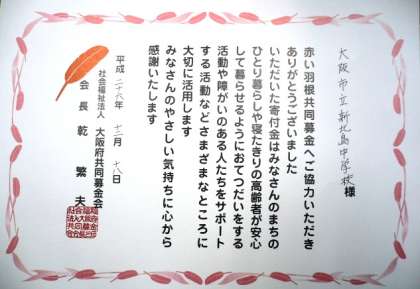 大阪市立新北島中学校様
赤い羽根共同募金へご協力いただき
ありがとうございました
いただいた寄付金はみなさんのまちの
ひとり暮らしや寝たきりの高齢者が安心
して暮らせるようにおてつだいをする
活動や障がいのある人たちをサポート
する活動などさまざまなところに
大切に活用します
みなさんのやさしい気持ちに心から
感謝いたします
平成二十八年 十二月 十八日
社会福祉法人 大阪府共同募金会
会長 乾 繁夫